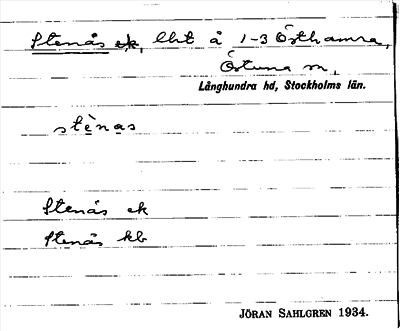 Stenås ek, lht å 1-3 Östhamra,
Östuna sn,
Långhundra hd, Stockholms län.
stènas
Stenås ek
Stenås kb
JÖRAN SAHLGREN 1934.